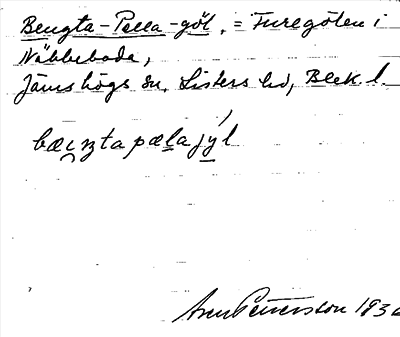 Bengta-Pella-göl, = Furegölen i
Näbbeboda,
Jämshögs sn, Listers hd, Blek. l.
Pettersson 193